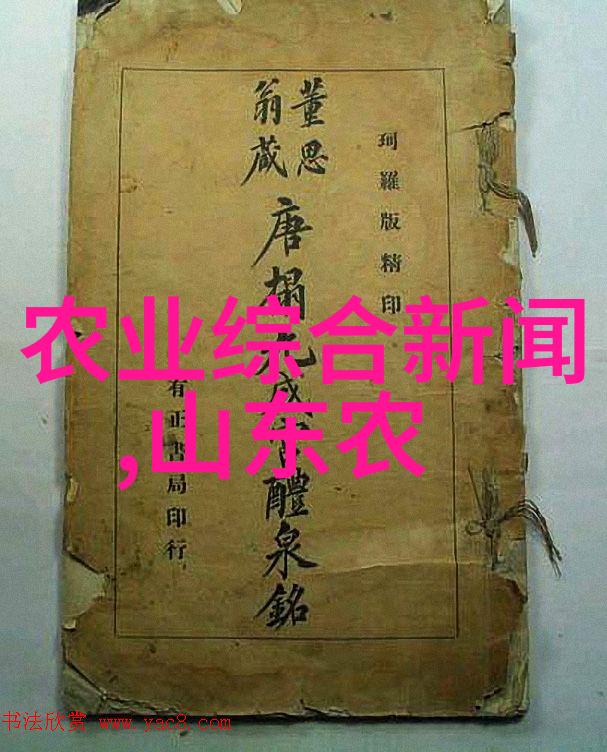 珂羅版精印
董思
翁蔵
唐搨九成醴泉銘
有正書局印行
农业综合新闻
,山东农
书法欣赏 www.yac8.com